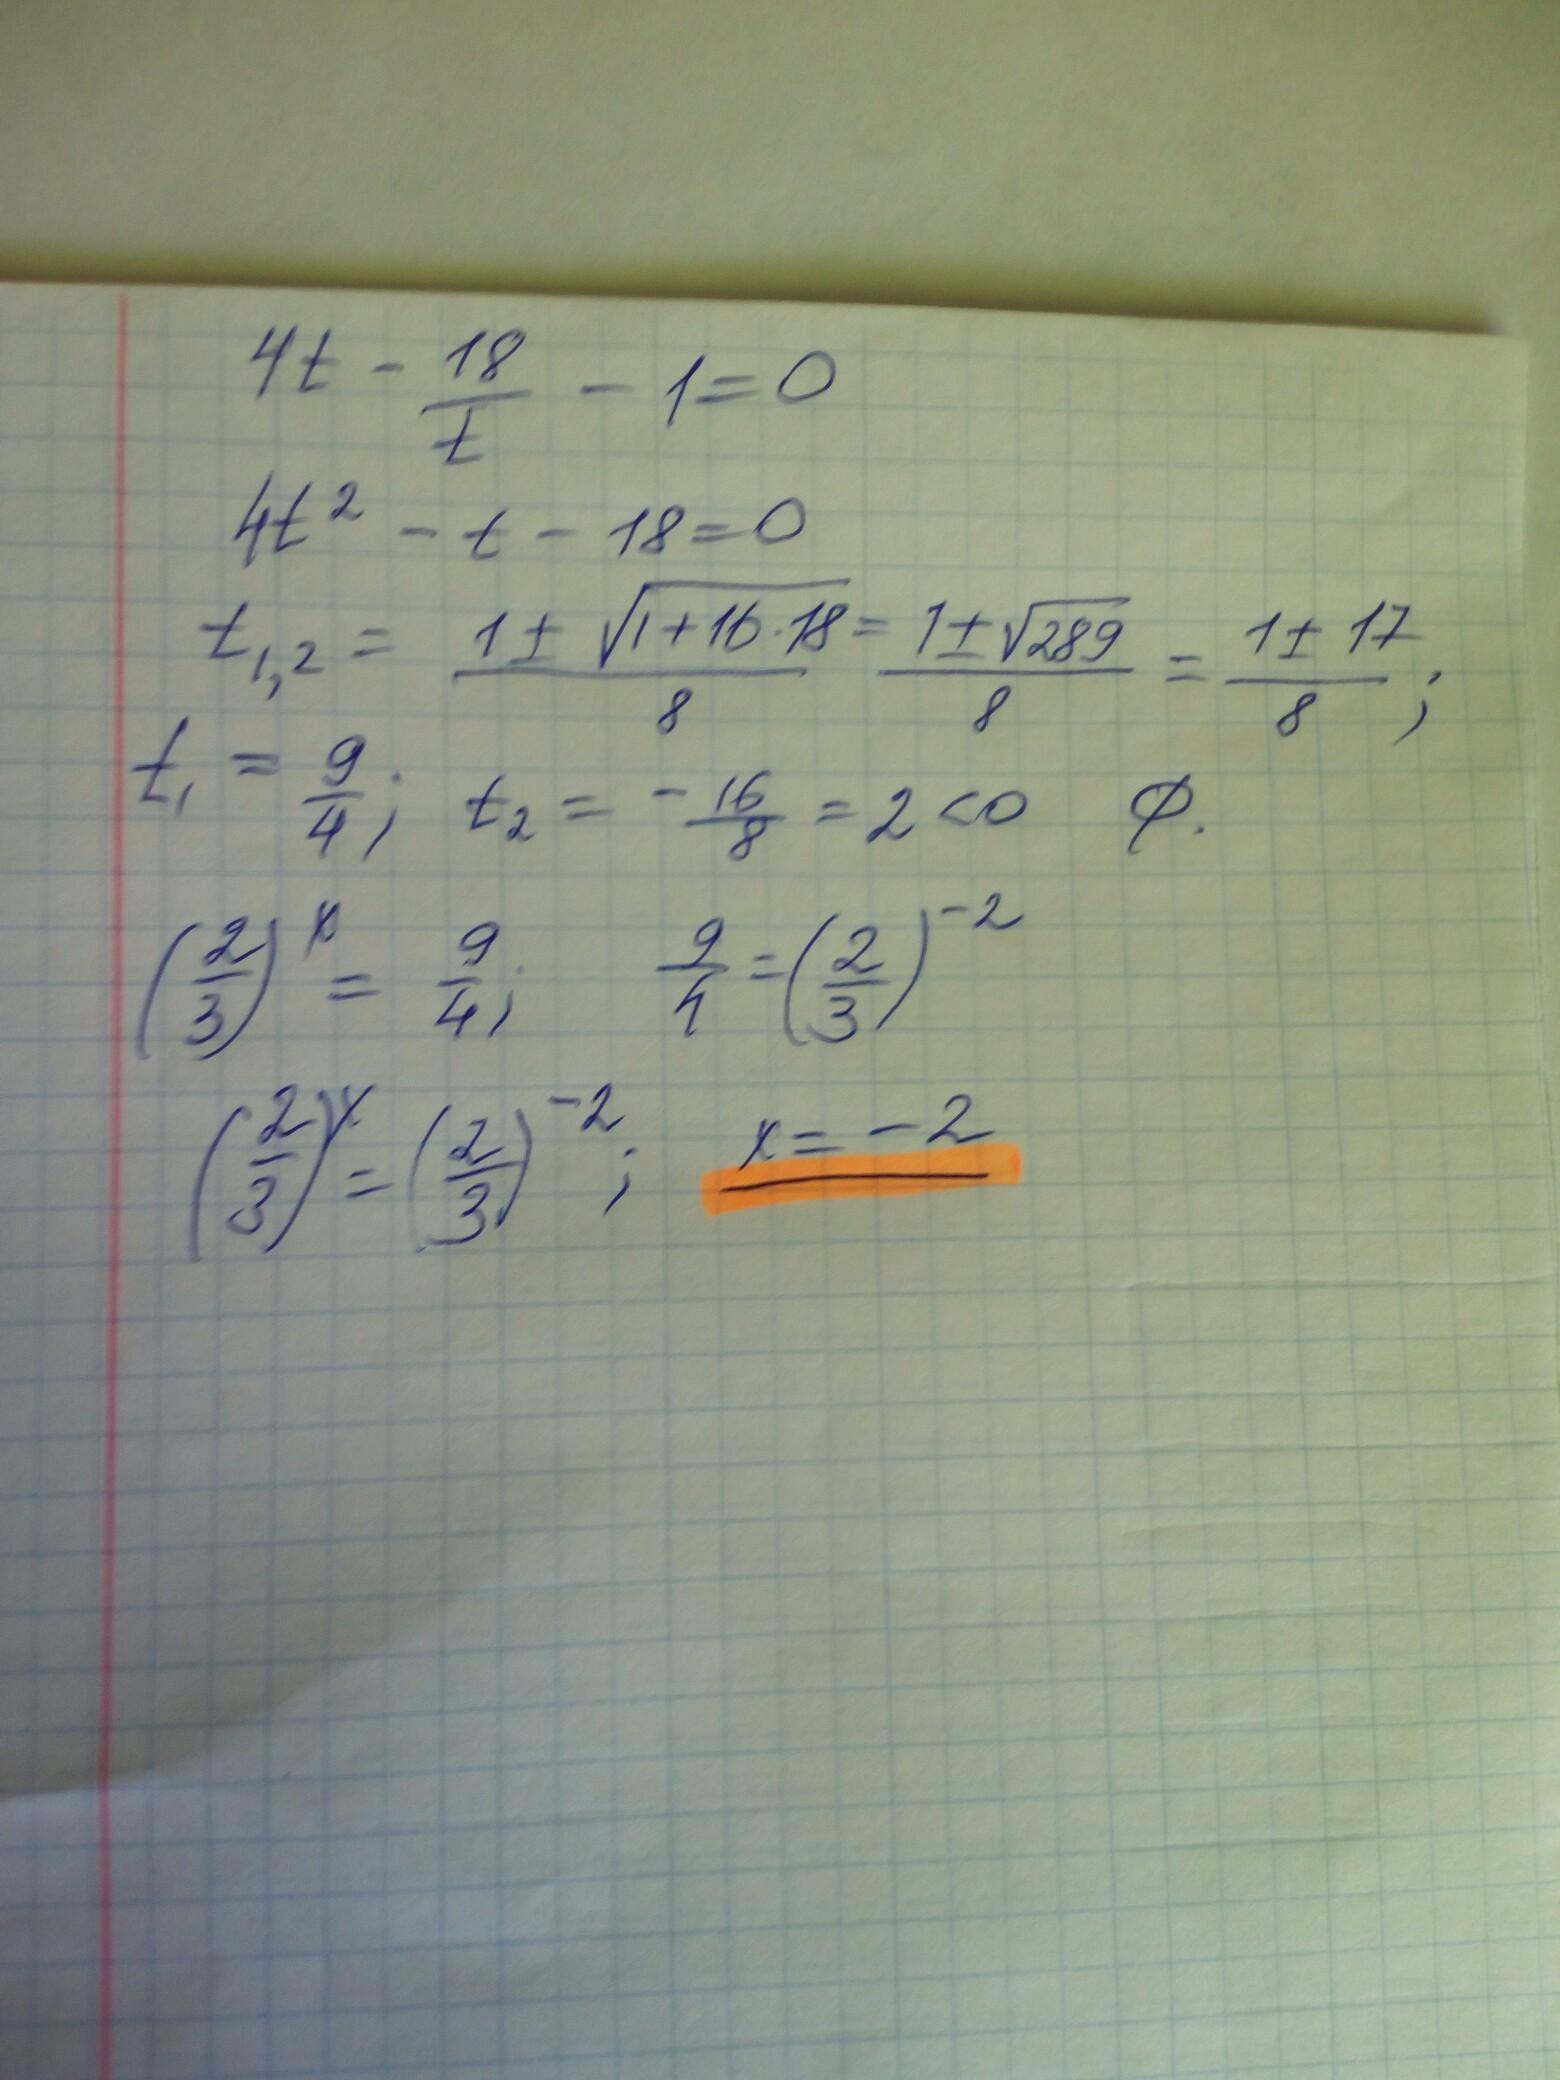 4t - 18/t - 1 = 0
4t² - t - 18 = 0
t₁,₂ = (1 ± √(1+16·18))/8 = (1 ± √289)/8 = (1 ± 17)/8 ;
t₁ = 9/4 ; t₂ = - 16/8 = 2 < 0 ∅.
(2/3)ˣ = 9/4 ; 9/4 = (2/3)⁻²
(2/3)ˣ = (2/3)⁻² ; x = -2